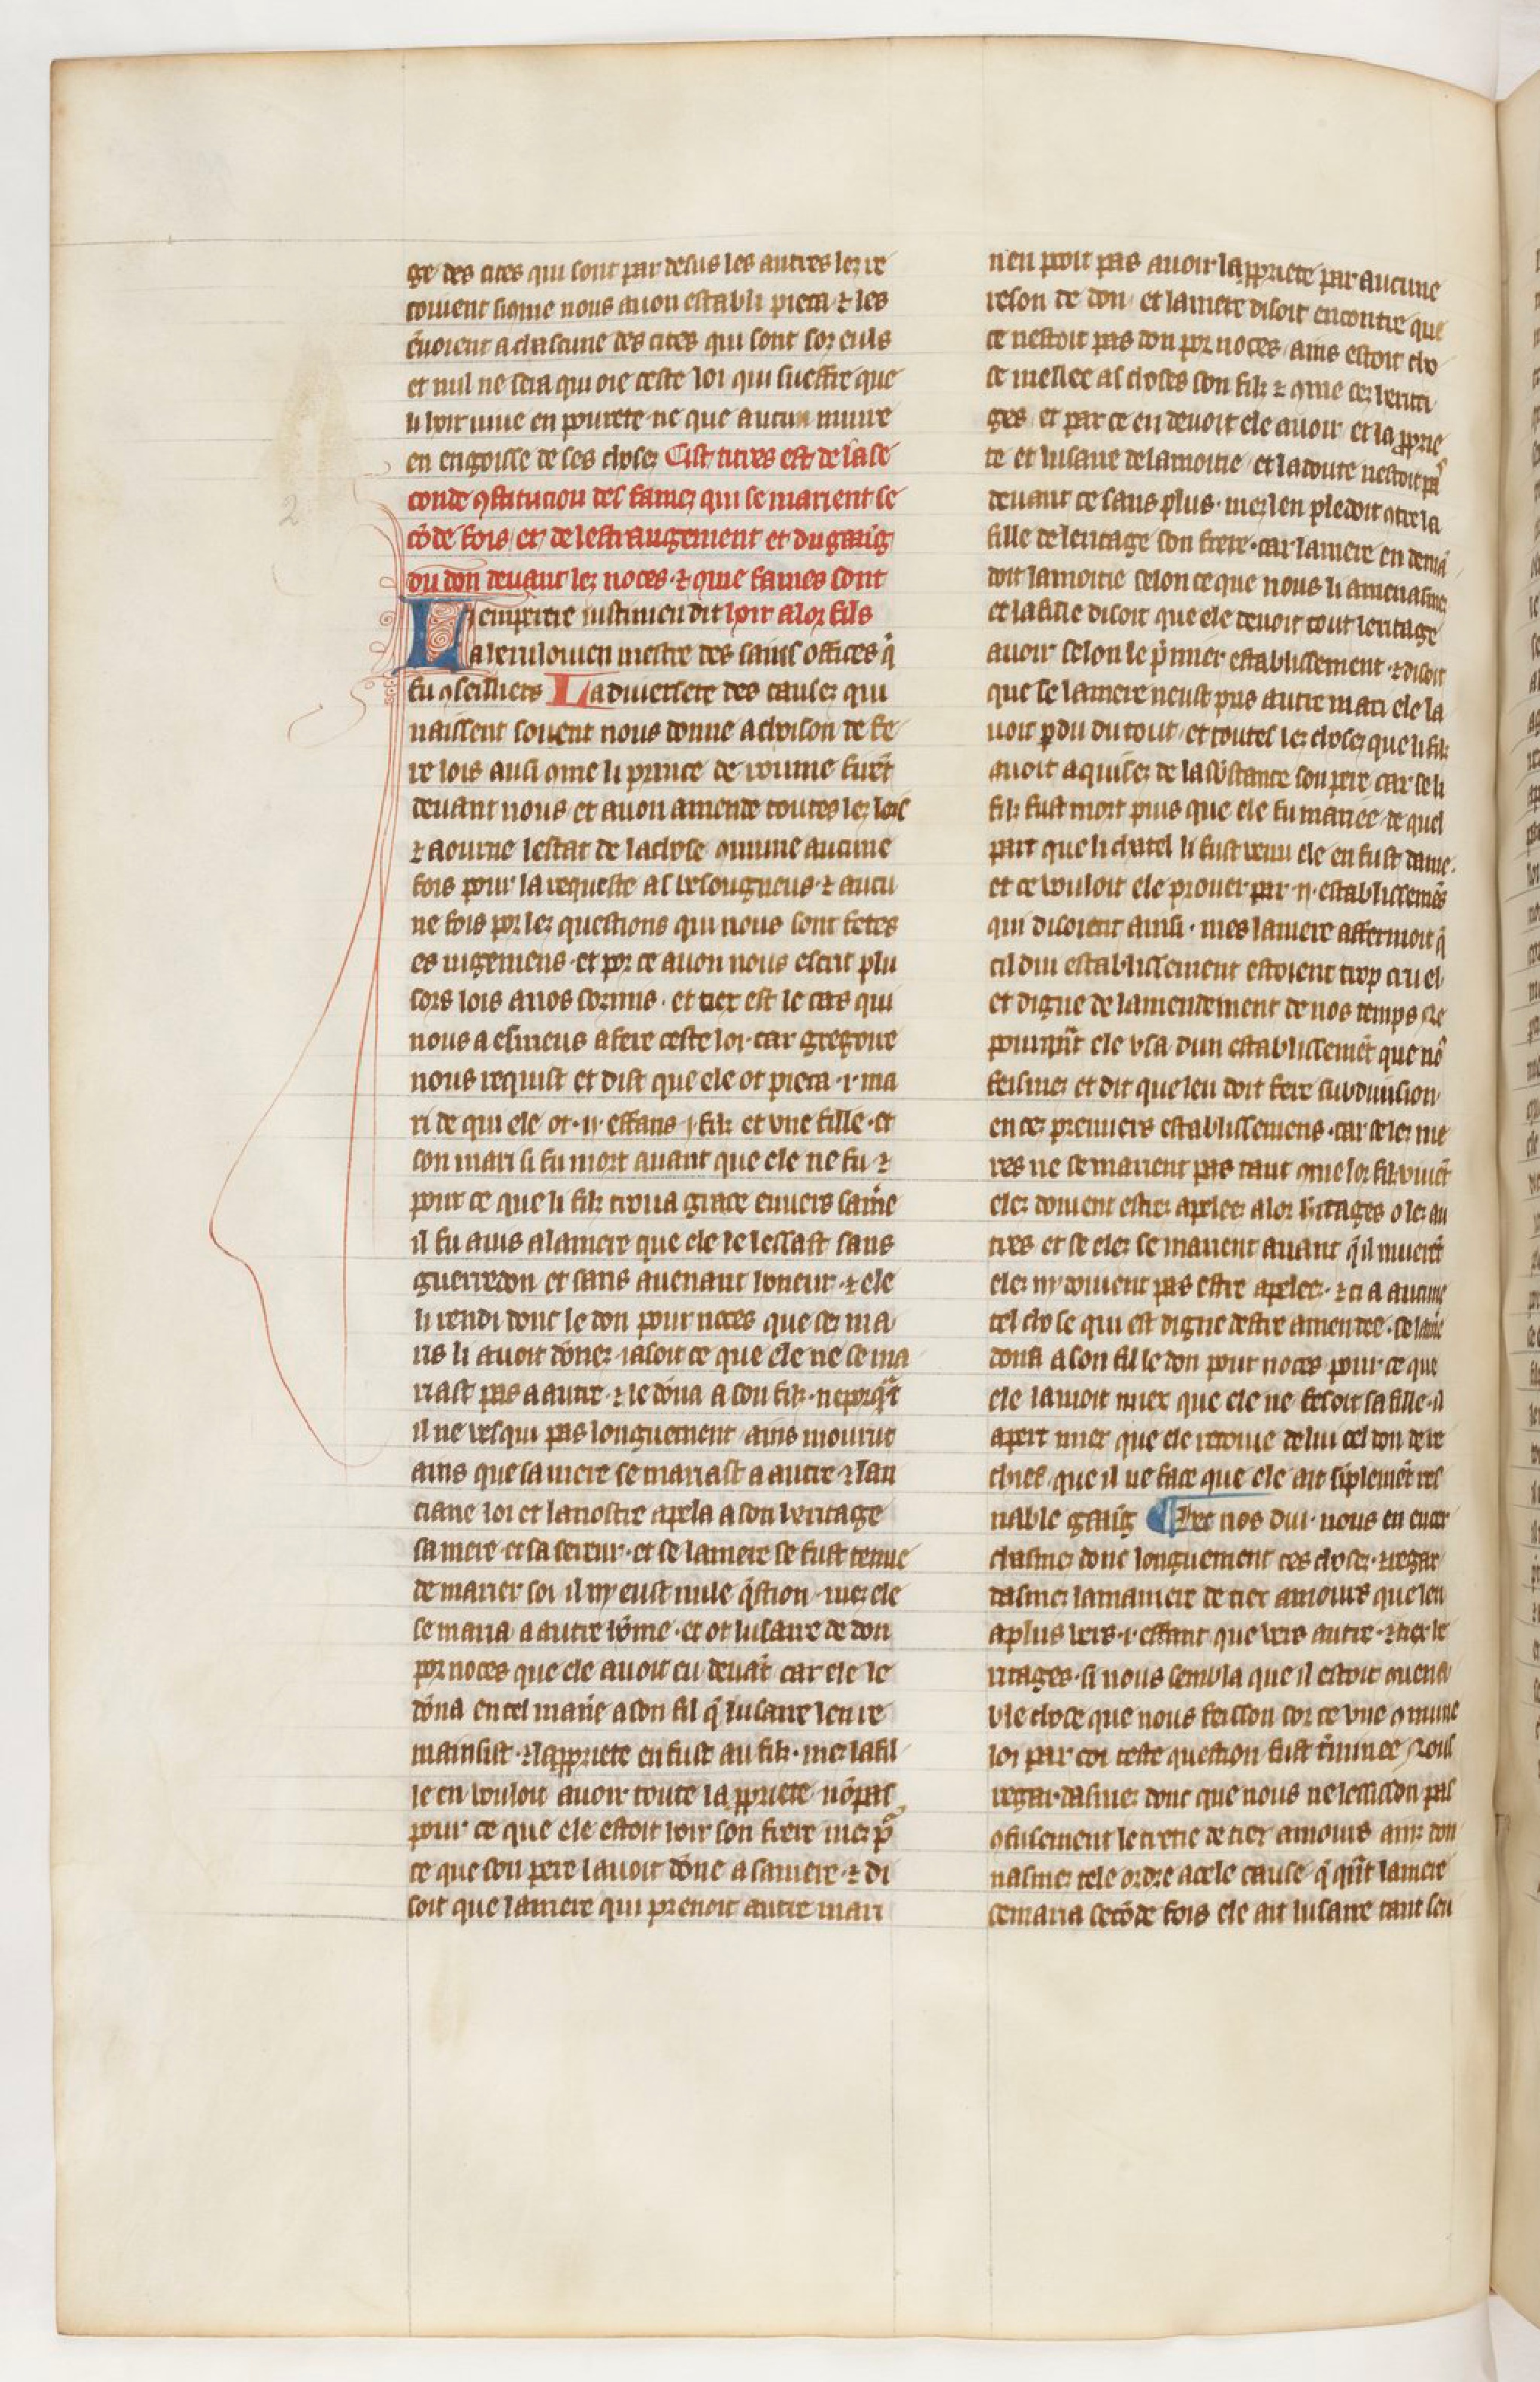 ge des cites qui sont par desus les autres lez re
couient sicōme nous auon establi pieca ⁊ les
ēuoient a chascune des cites qui sont sor euls
et nul ne sera qui oie ceste loi qui sueffre que
li hoir uiue en pourete ne que aucun muire
en engoisse de ses choses Cist titres est de la se
conde ꝯstitucion des famez qui se marient se
cōde fois et de lestrangement et du gaaīg
du don deuant lez noces ⁊ ꝯme fames sont
Lemperere iustinien dit hoir a lor fils
a hermouien mestre des sains offices q̄
fu ꝯseilliers La diuersete des causez qui
naissent souent nous donne achoison de fe
re lois ausi ꝯme li prince de roume furēt
deuant nous et auon amende toutes lez lois
⁊ aourne lestat de la chose ꝯmune aucune
fois pour la requeste as besougneus ⁊ aucu
ne fois por lez questions qui nous sont fetes
es iugemens et por ce auon nous escrit plu
sors lois a nos sormis et tiex est le cas qui
nous a esmeus a fere ceste loi car gregoire
nous requist et dist que ele ot pieca .i. ma
ri de qui ele ot .ii. effans .j. filz et vne fille et
son mari si fu mort auant que ele ne fu ⁊
pour ce que li filz troua grace enuers sa mē
il fu auis a la mere que ele le lessast sans
guerredon et sans auenant honeur ⁊ ele
li rendi donc le don pour noces que cez ma
ris li auoit dōnez ia soit ce que ele ne se ma
riast pas a autre ⁊ le dōna a son filz neporq̄t
il ne vesqui pas longuement ains mourut
ains que sa mere se mariast a autre ⁊ lan
ciane loi et la nostre apela a son heritage
sa mere et sa sereur et se la mere se fust tenue
de marier soi il ny eust nule q̄stion mez ele
se maria a autre hōme et ot lusaire de don
por noces que ele auoit eu deuāt car ele le
dōna en tel manīe a son fil q̄ lusaire len re
mainsist ⁊ la ꝓpriete en fust au filz mez la fil
le en vouloit auoir toute la ꝓpriete nō pas
pour ce que ele estoit hoir son frere mez pᵒ
ce que son pere lauoit dōne a sa mere ⁊ di
soit que la mere qui prenoit autre mari
nen poit pas auoir la ꝓpriete par aucune
reson de don et la mere disoit encontre que
ce nestoit pas don por noces ains estoit cho
se mellee as choses son filz ⁊ ꝯme cez herita
ges et par ce en deuoit ele auoir et la ꝓprie
te et lusaire de la moitie et la doute nestoit pᵃ
deuant ce sans plus mez len pledoit ꝯtre la
fille de leritage son frere car la mere en demā
doit la moitie selon ce que nous li amenasmez
et la fille disoit que ele deuoit tout leritage
auoir selon le p̄mier establissement ⁊ disoit
que se la mere neust pris autre mari ele la
uoit ꝑdu du tout et toutes lez choses que li filz
auoit aquisez de la sustance son pere car se li
filz fust mort puis que ele fu mariee de quel
part que li chatel li fust venu ele en fust dame
et ce vouloit ele prouer par .ij. establissemēs
qui disoient ainsi mes la mere affermoit q̄
cil dui establissement estoient trop cruel
et digne de lamendement de nos temps ⁊ le
pourquāt ele vsa dun establissemēt que nᵒ
feismez et dit que len doit fere subdiuision
en cez premiers establissemens car se lez me
res ne se marient pas tant ꝯme lor filz viuēt
elez doiuent estrez apelees a lor hītages o lez au
tres et se elez se marient auant q̄ il muerēt
elez ny doiuent pas estre apelees ⁊ ci a aucune
tel chose qui est digne destre amendee se la mē
dona a son fil le don pour noces pour ce que
ele lamoit miex que ele ne fesoit sa fille il
apert miex que ele retome de lui cel don de re
chief que il ne face que ele ait siplemēt res
nable gaaīg ¶ Fet nos dui nous en encer
chasmez donc longuement ces choses ⁊ regar
dasmez la maniere de tiex amours que len
a plus vers .i. effant que vers autre ⁊ tiex he
ritages si nous sembla que il estoit ꝯuena
ble chose que nous feisson sor ce vne ꝯmune
loi par coi ceste question fust t̄minee ⁊ nous
regardasmez donc que nous ne lessisson pas
ꝯfusement le tretie de tiex amours ainz don
nasmez tele ordre a cele cause q̄ q̄nt la mere
se maria secōde fois ele ait lusaire tant seu